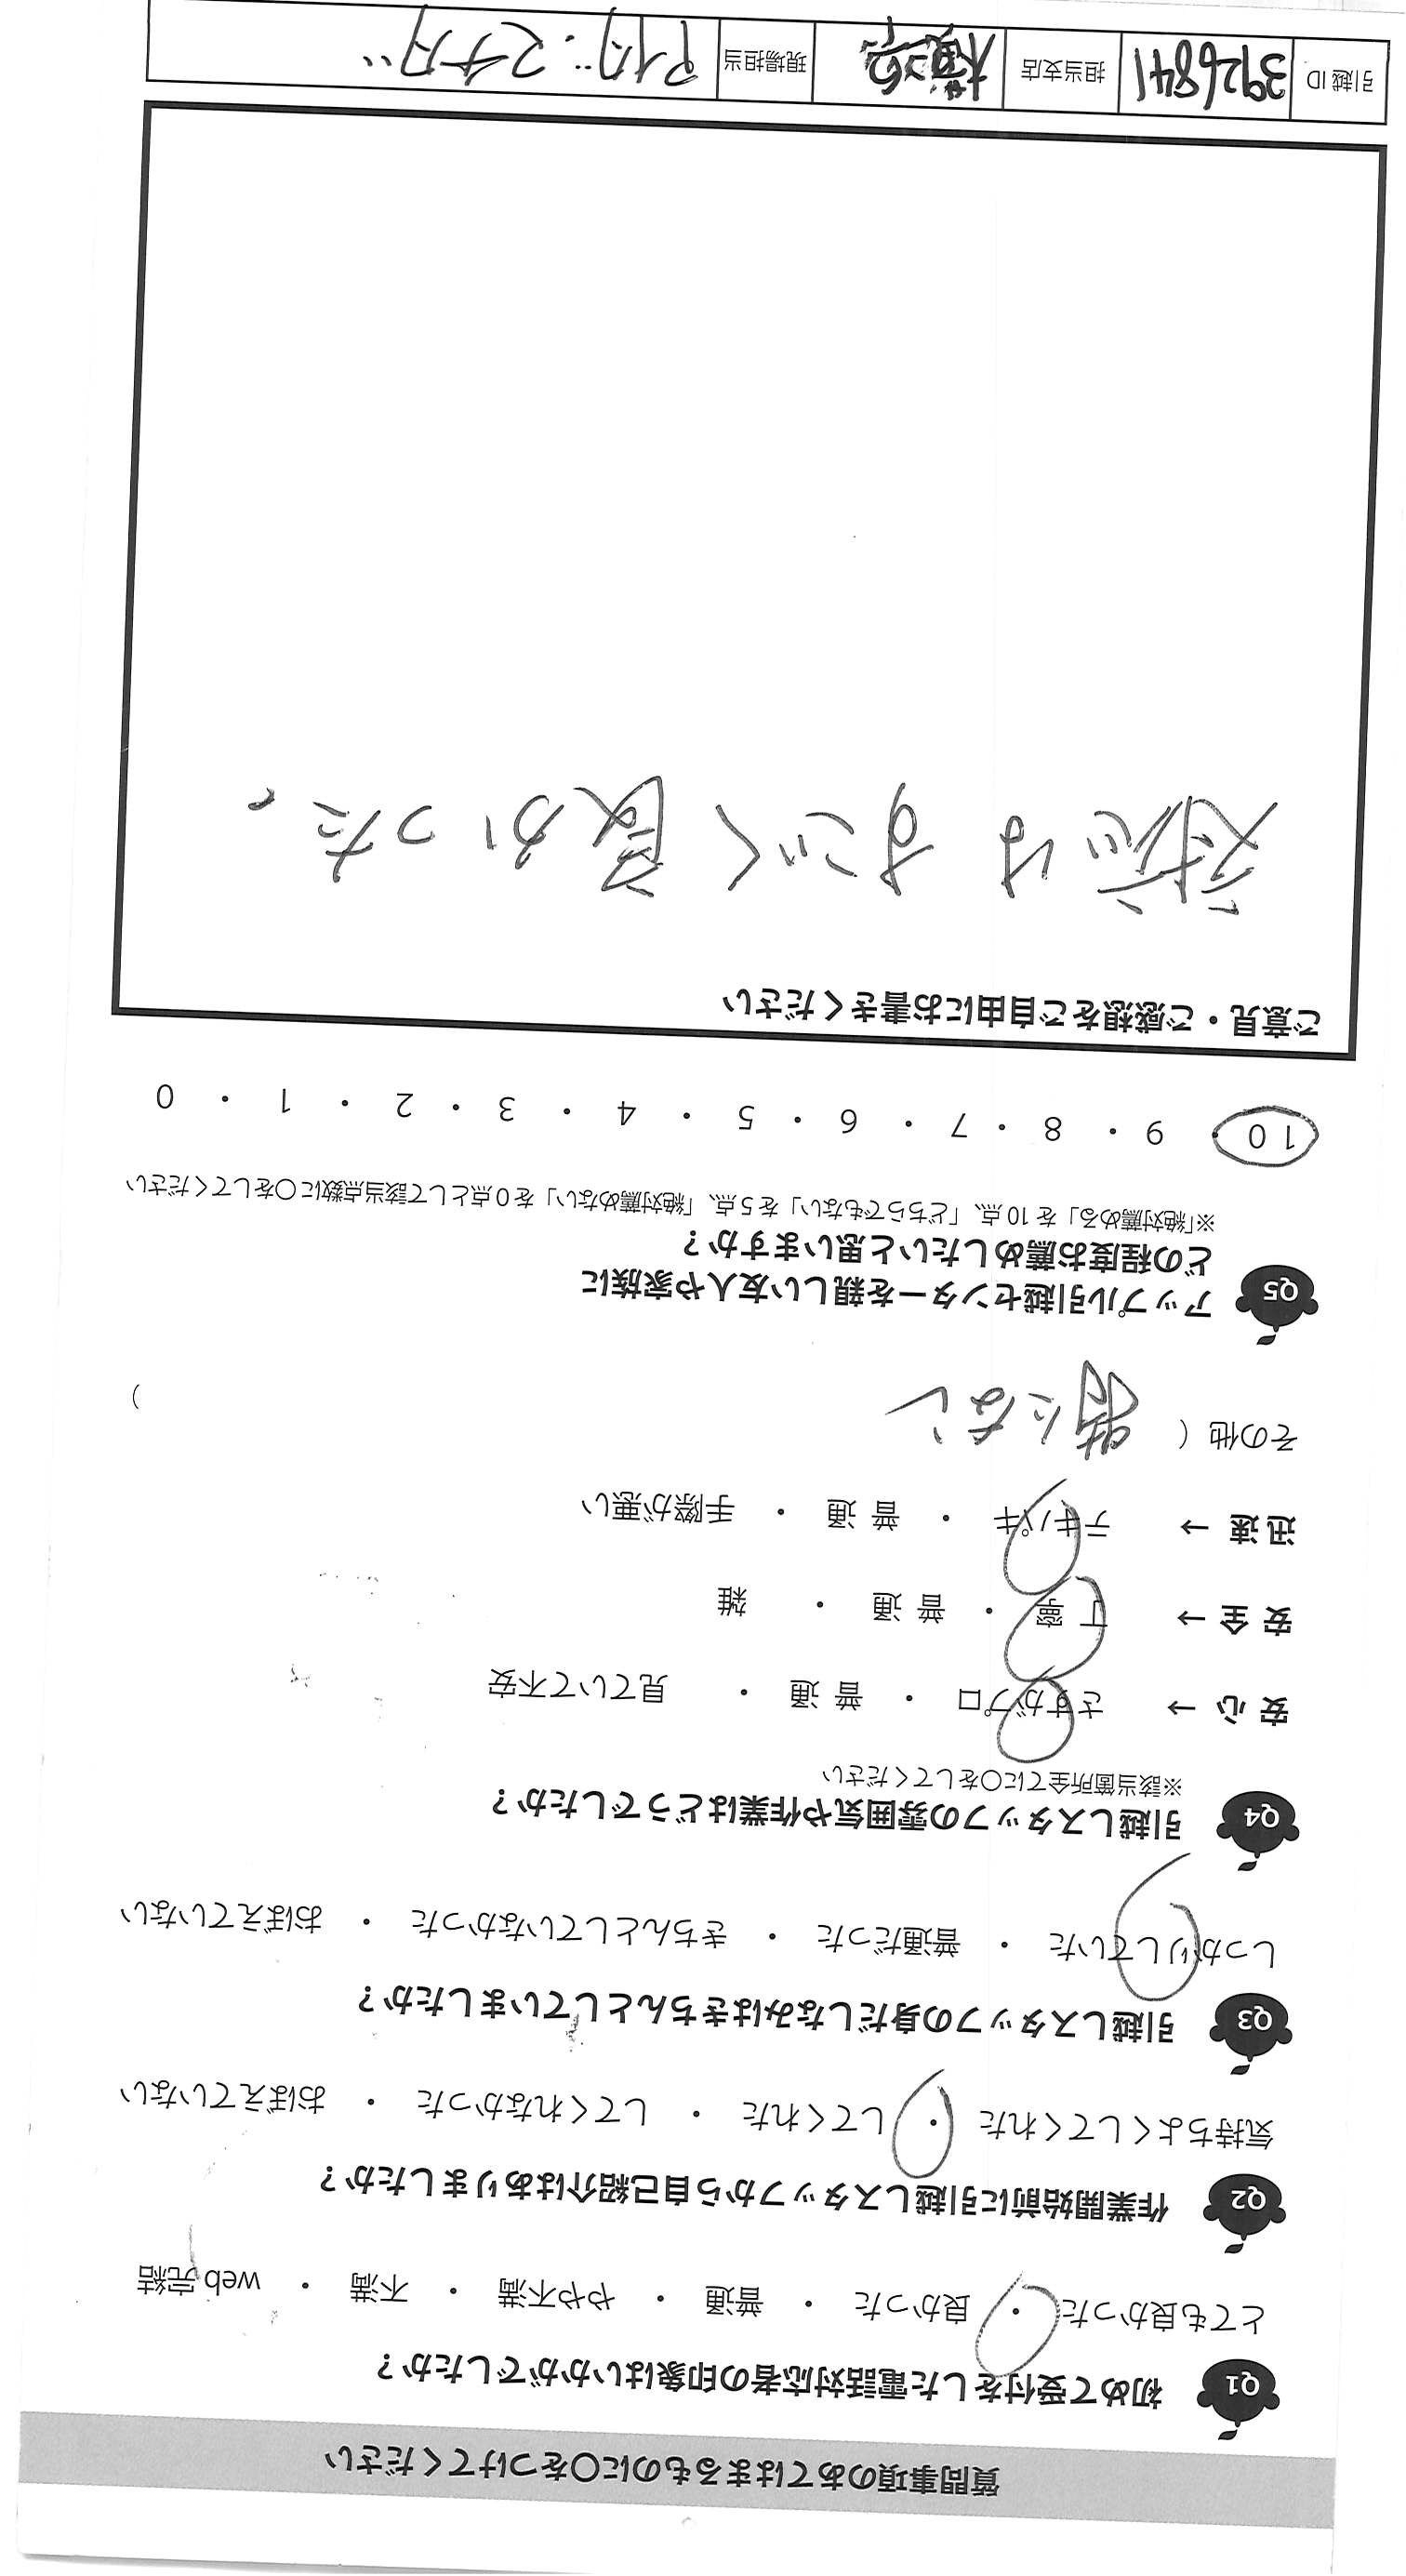 質問事項のあてはまるものに〇をつけてください
Q1 初めて受付をした電話対応者の印象はいかがでしたか？
とても良かった ・ 良かった ・ 普通 ・ やや不満 ・ 不満 ・ web完結
Q2 作業開始前に引越しスタッフから自己紹介はありましたか？
気持ちよくしてくれた ・ してくれた ・ してくれなかった ・ おぼえていない
Q3 引越しスタッフの身だしなみはきちんとしていましたか？
しっかりしていた ・ 普通だった ・ きちんとしていなかった ・ おぼえていない
Q4 引越しスタッフの雰囲気や作業はどうでしたか？
※該当箇所全てに〇をしてください
安心 → さすがプロ ・ 普通 ・ 見ていて不安
安全 → 丁寧 ・ 普通 ・ 雑
迅速 → テキパキ ・ 普通 ・ 手際が悪い
その他 ( 特になし )
Q5 アップル引越センターを親しい友人や家族に
どの程度お薦めしたいと思いますか？
※「絶対薦める」を10点、「どちらでもない」を5点、「絶対薦めない」を0点として該当点数に〇をしてください
10 ・ 9 ・ 8 ・ 7 ・ 6 ・ 5 ・ 4 ・ 3 ・ 2 ・ 1 ・ 0
ご意見・ご感想をご自由にお書きください
対応はすごく良かった。
引越ID 3926841 担当支店 現場担当